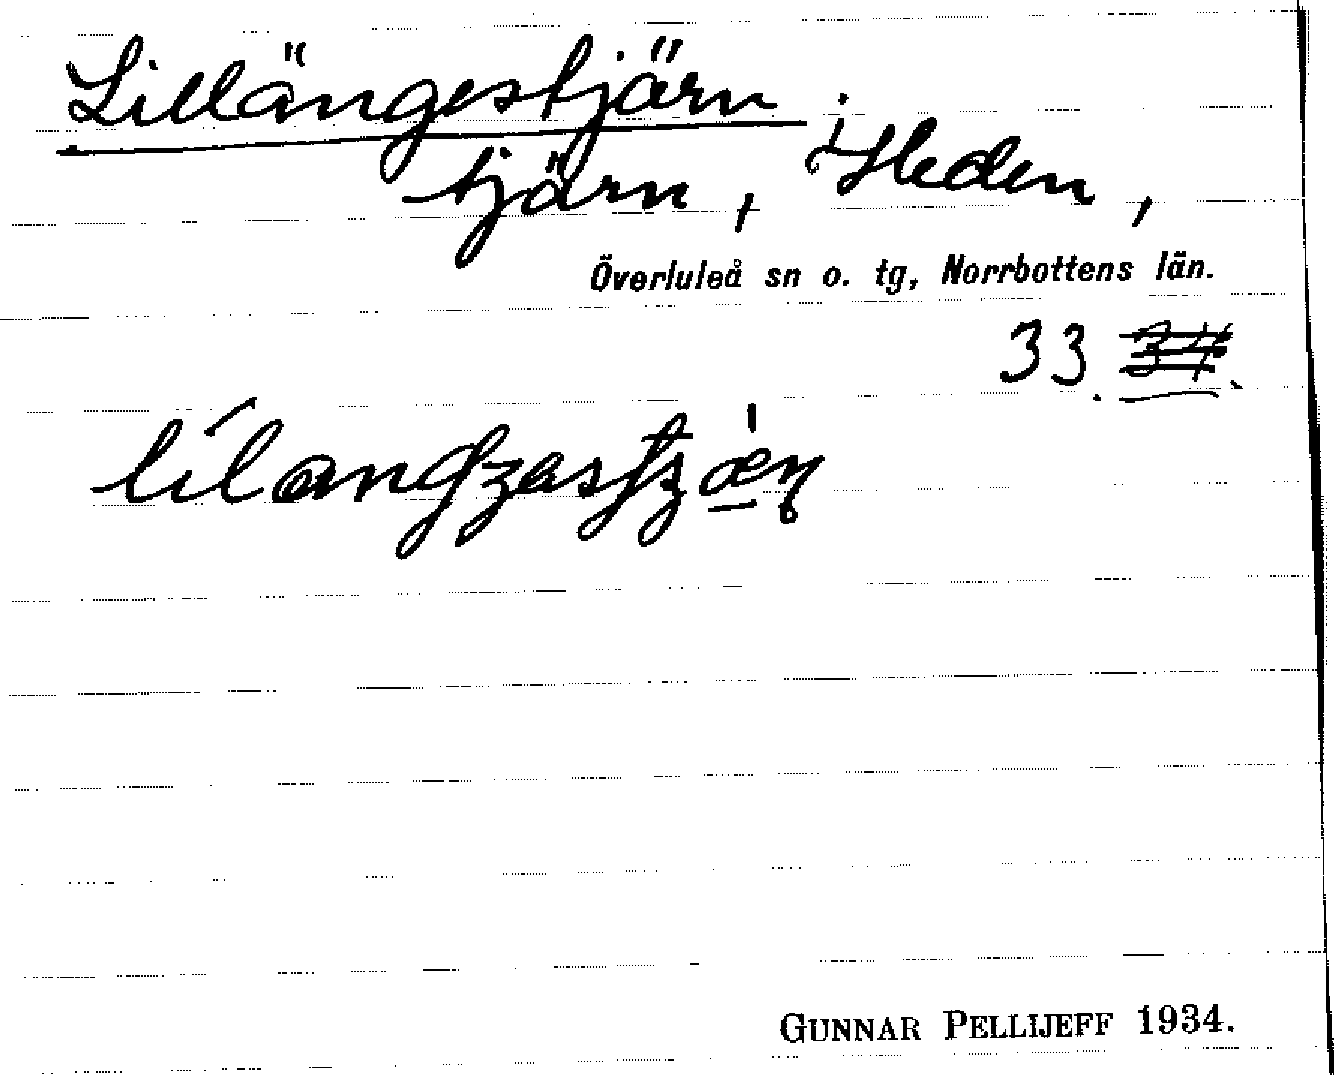 Lillängestjärn
tjärn, i Heden,
Överluleå sn o. tg, Norrbottens län.
33.
GUNNAR PELLIJEFF 1934.